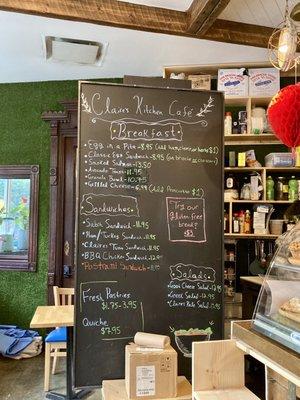 Claire's Kitchen Café
Breakfast
Egg in a Pita - $8.95 (Add Ham, cheese or bacon $1)
Classic Egg Sandwich - $8.95 (on brioche or ciabatta)
Smoked Salmon - 13.50
Avocado Toast - 11.95
Granola Bowl - 10.95
Grilled Cheese - 6.99 (Add Prosciutto $1)
Sandwiches
Sabich Sandwich - 11.95
Ham/Turkey
Sandwich - 11.95
Claires Tuna Sandwich - 11.95
BBQ Chicken Sandwich - 12.95
Pastrami Sandwich -
Try our
gluten free
bread!
$3
Fresh Pastries
$1.75-3.95
Quiche
$7.95
Salads
Goat Cheese Salad - 12.95
Greek Salad - 12.95
Claire's Keto Salad -